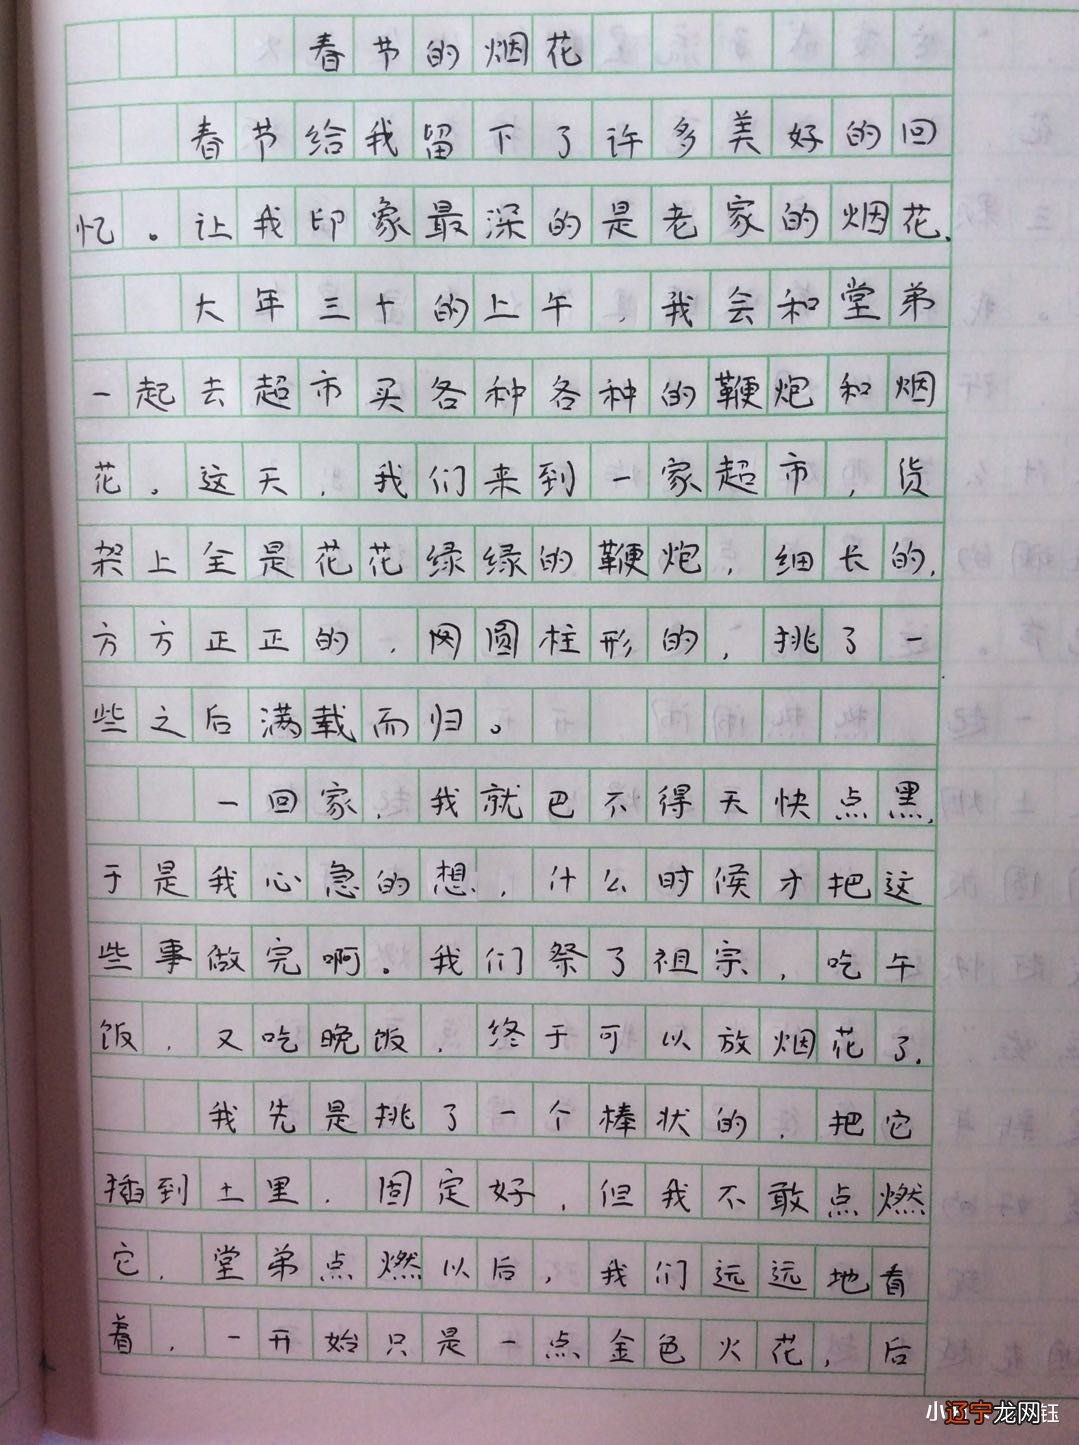 春节的烟花
春节给我留下了许多美好的回
忆。让我印象最深的是老家的烟花.
大年三十的上午，我会和堂弟
一起去超市买各种各种的鞭炮和烟
花。这天，我们来到一家超市，货
架上全是花花绿绿的鞭炮，细长的，
方方正正的，网圆柱形的，挑了一
些之后满载而归。
一回家，我就巴不得天快点黑，
于是我心急的想，什么时候才把这
些事做完啊。我们祭了祖宗，吃午
饭，又吃晚饭，终于可以放烟花了.
我先是挑了一个棒状的，把它
插到土里，固定好，但我不敢点燃
它，堂弟点燃以后，我们远远地看
着，一开始只是一点金色火花，后
辽宁龙网钰